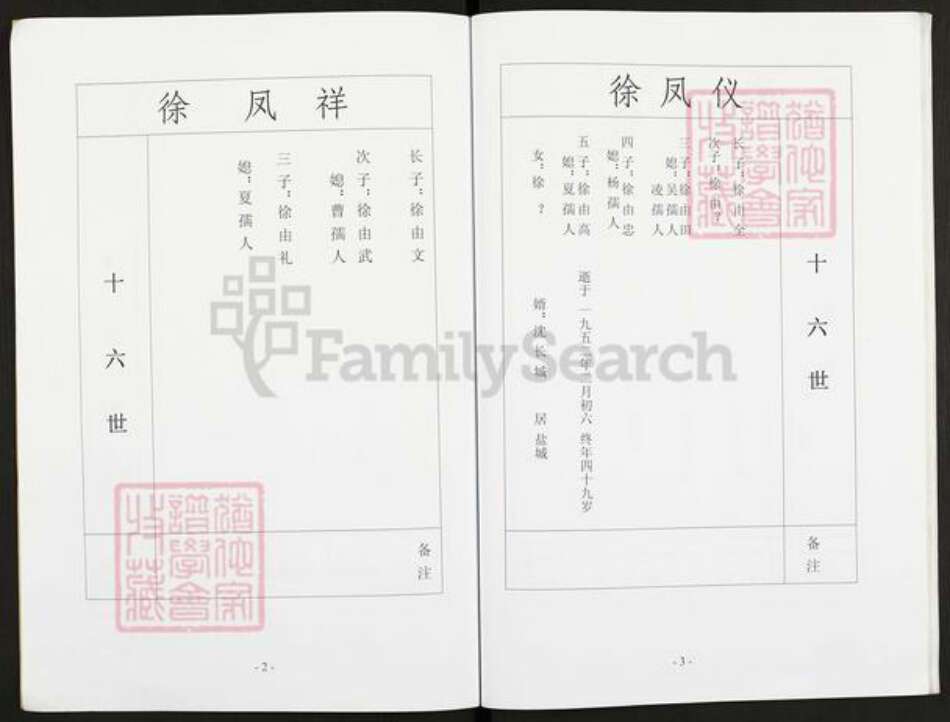 徐凤祥
长子：徐由文
次子：徐由武
媳：曹孺人
三子：徐由礼
媳：夏孺人
十六世
备注
- 2 -
徐凤仪
长子：徐由全
次子：徐由？
三子：徐由田
媳：吴孺人
凌孺人
四子：徐由忠
媳：杨孺人
五子：徐由高 逝于一九五二年二月初六 终年四十九岁
媳：夏孺人
女：徐？ 婿：沈长城 居盐城
十六世
备注
- 3 -
FamilySearch